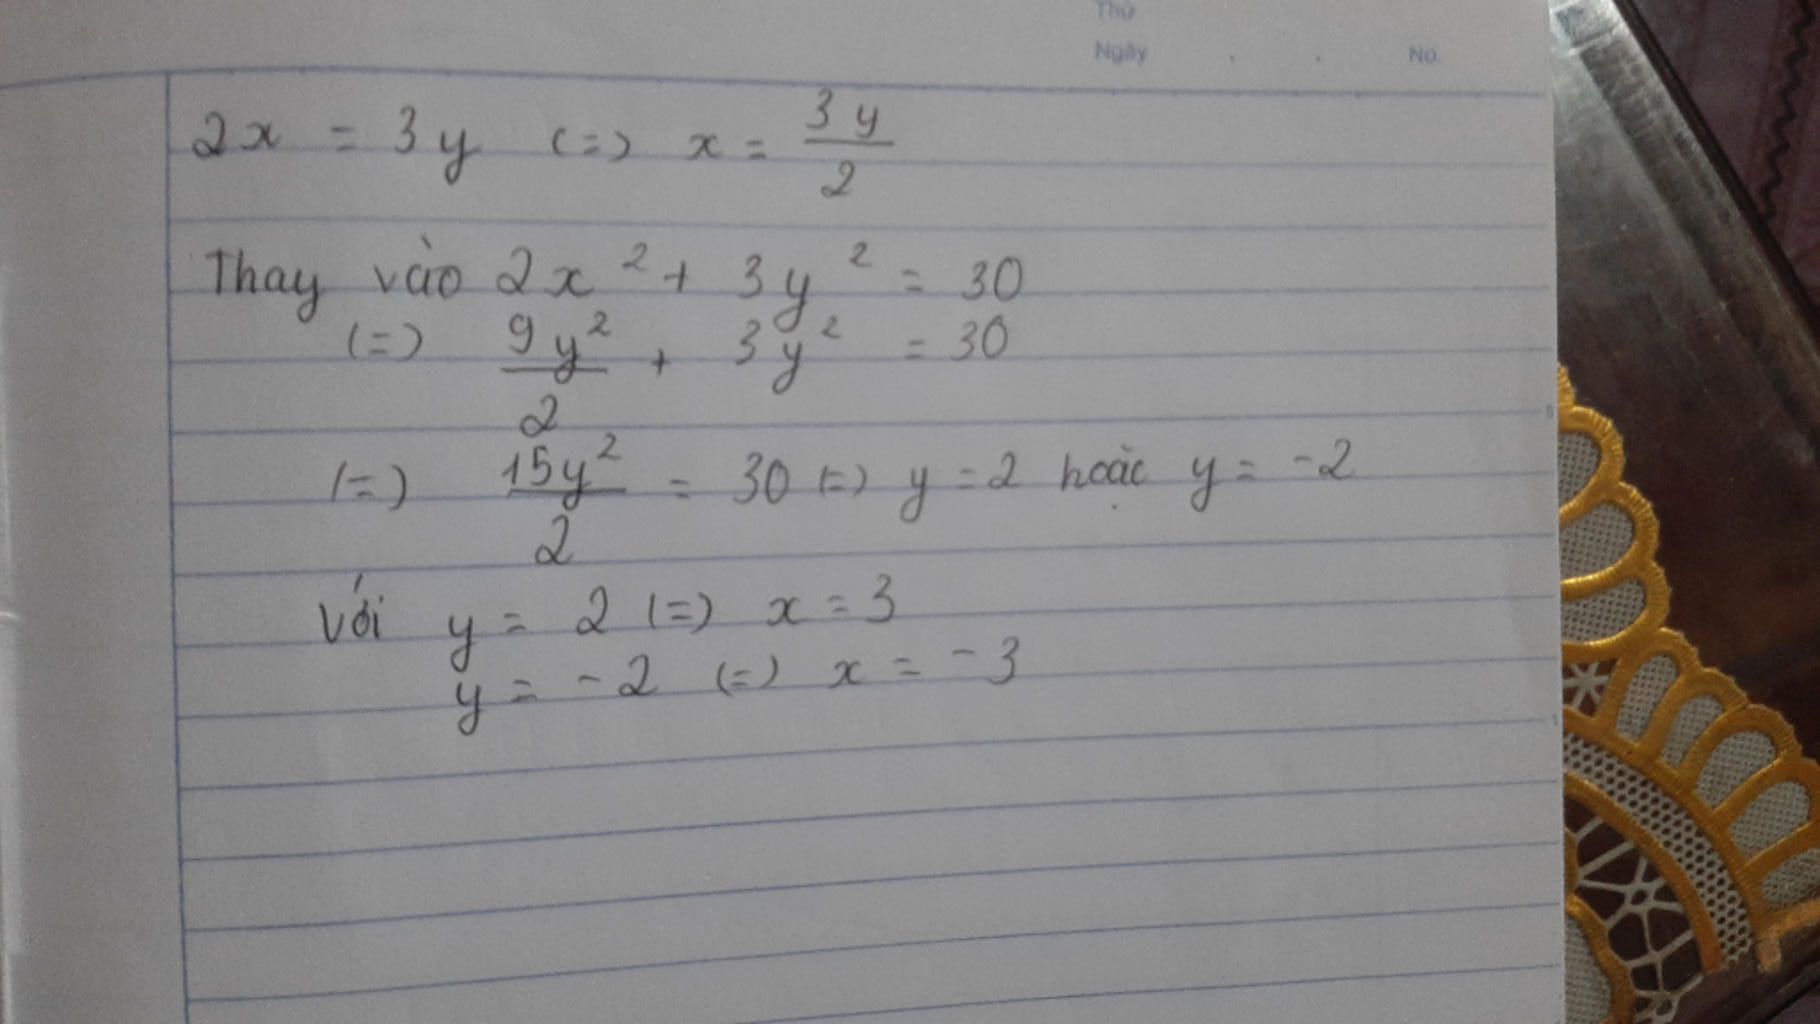 Thứ
Ngày . . No.
2x = 3y (=) x = 3y/2
Thay vào 2x² + 3y² = 30
(=) 9y²/2 + 3y² = 30
(=) 15y²/2 = 30 (=) y = 2 hoặc y = -2
Với y = 2 (=) x = 3
y = -2 (=) x = -3